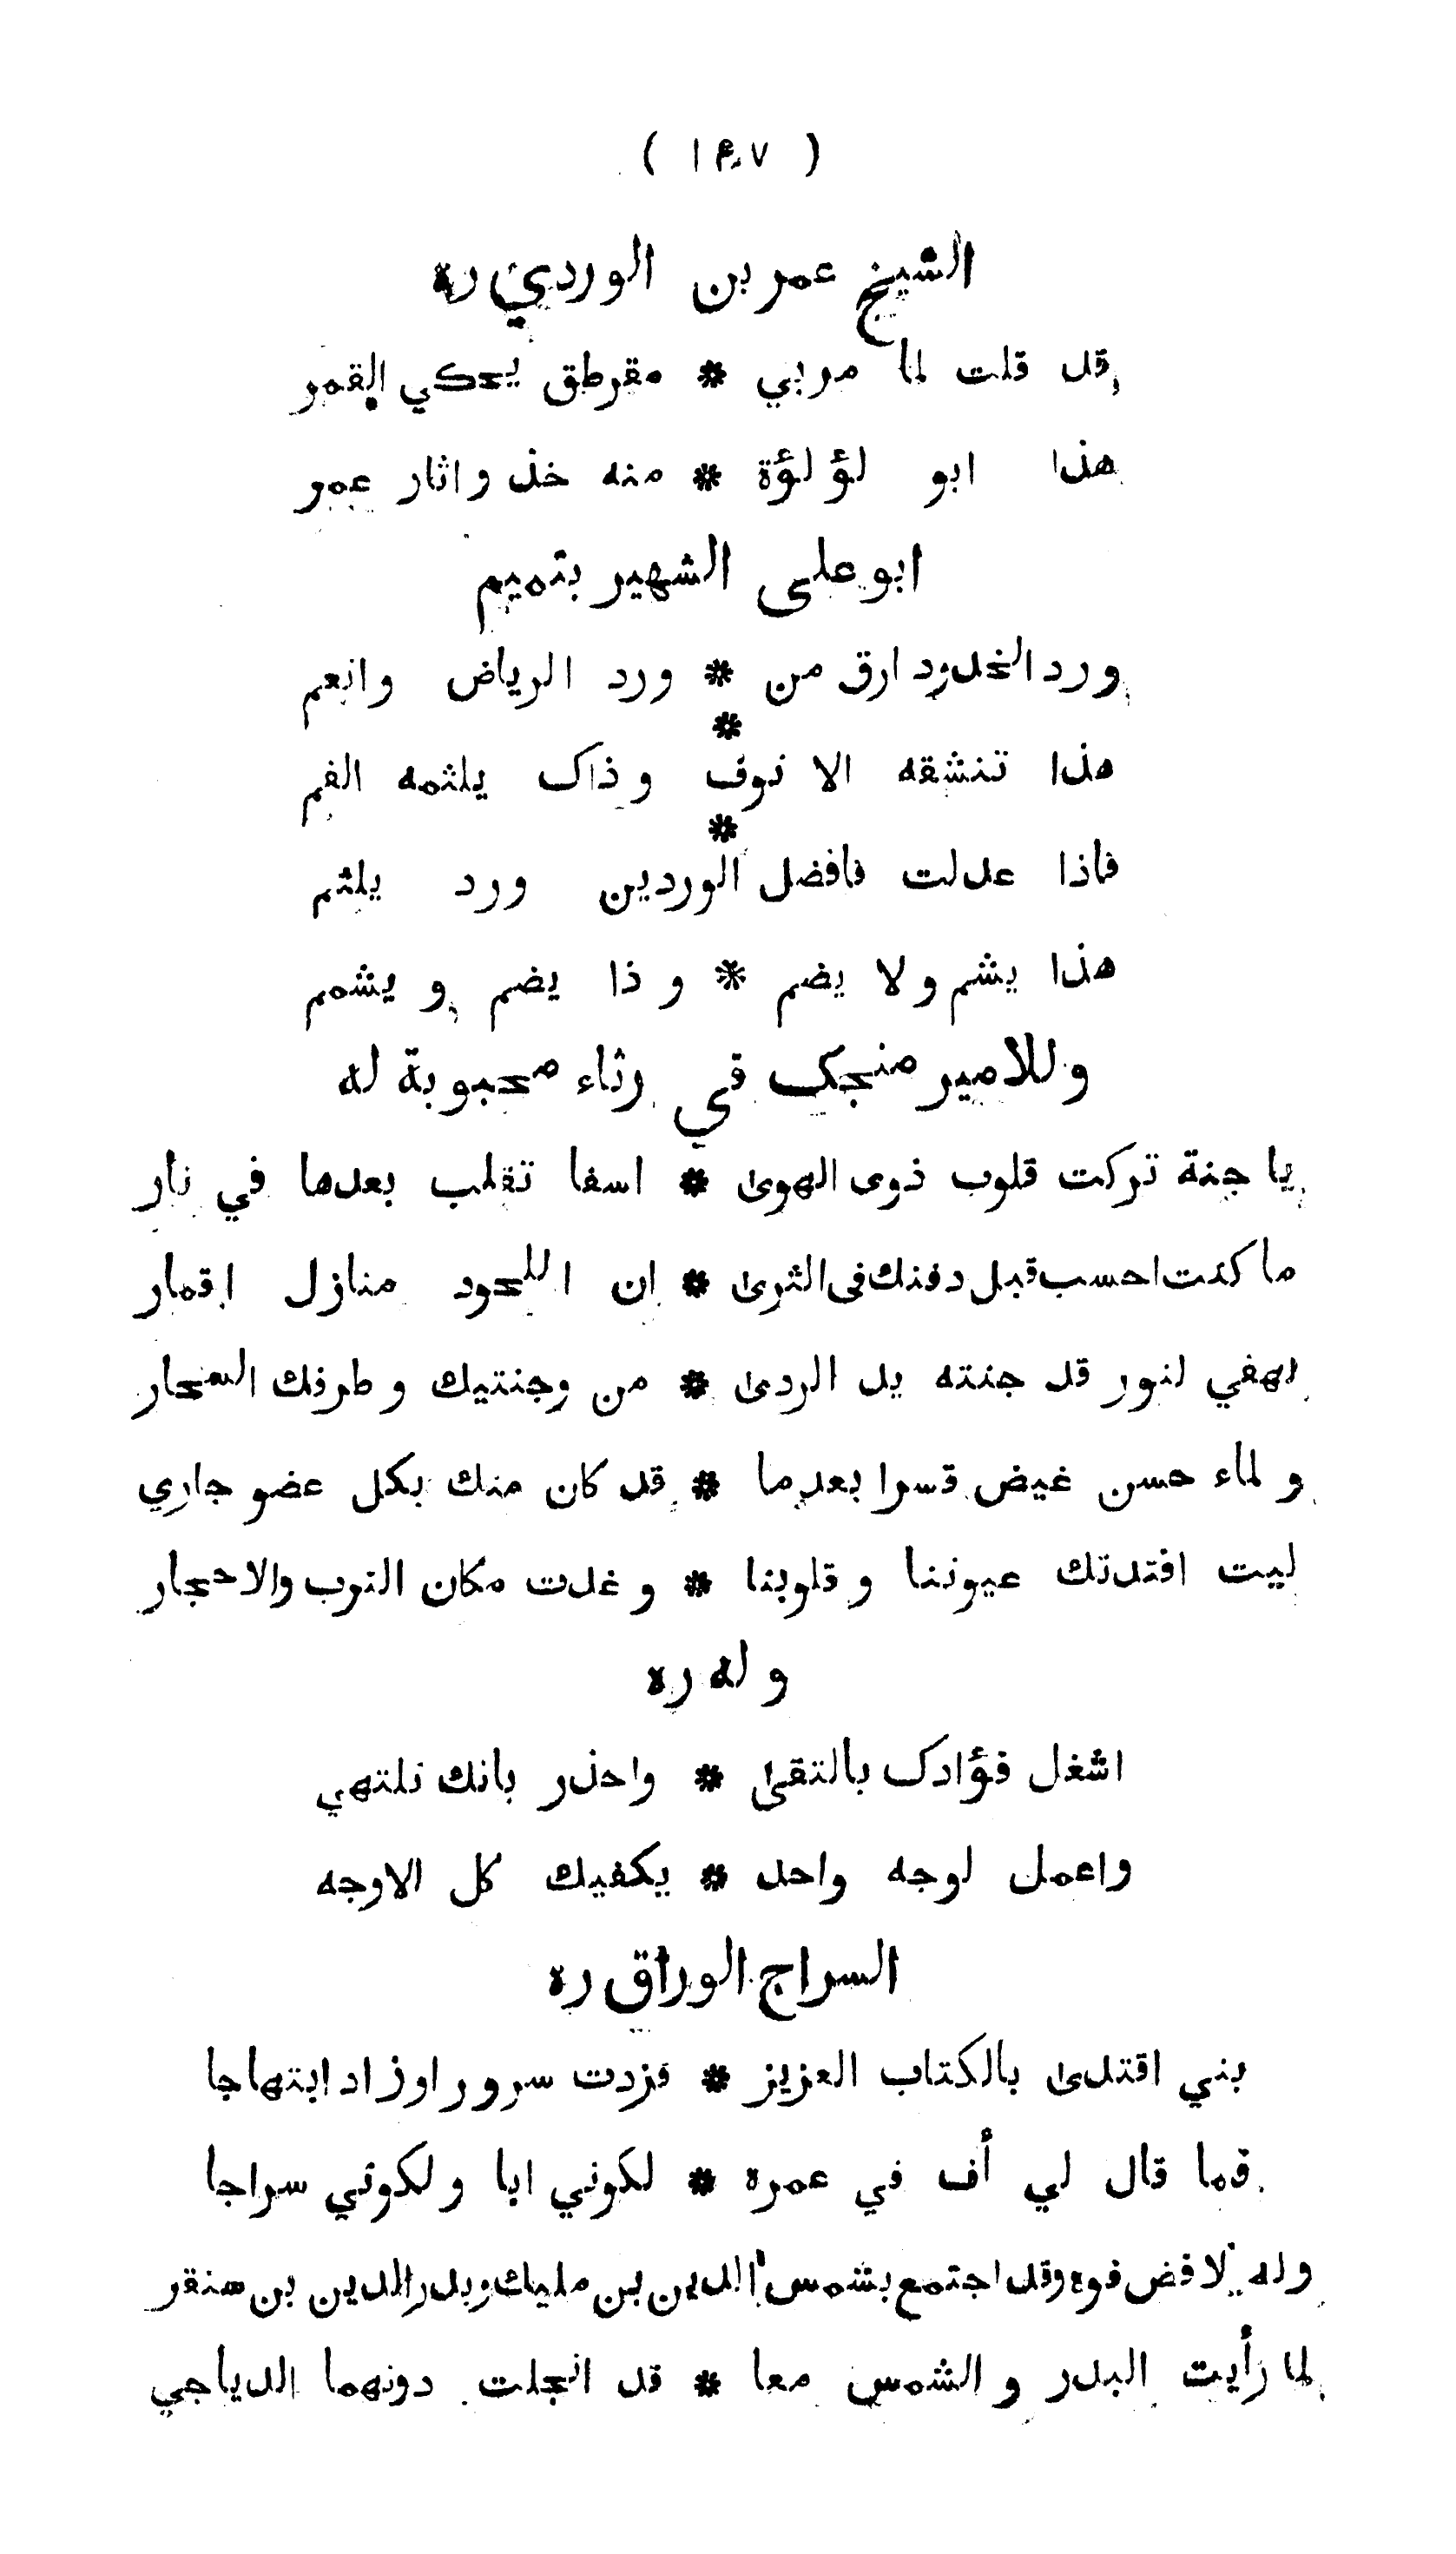 ( ١٤٧ )
الشيخ عمر بن الوردي ره
قد قلت لما مر بي * مقرطق يحكي القمر
هذا ابو لؤلؤة * منه خذوا ثار عمر
ابو على الشهير بتميم
ورد الخدود ارق من * ورد الرياض وانعم
هذا تنشقه الانوف * وذاك يلثمه الفم
فاذا عدلت فافضل * الوردين ورد يلثم
هذا يشم ولا يضم * وذا يضم ويشمم
وللامير منجك في رثاء محبوبة له
يا جنة تركت قلوب ذوى الهوى * اسفا تقلب بعدها في نار
ما كنت احسب قبل دفنك في الثرى * ان اللحود منازل اقمار
لهفي لنور قد جنته يد الردى * من وجنتيك وطرفك السحار
ولماء حسن غيض قسرا بعدما * قد كان منك بكل عضو جاري
ليت افتدتك عيوننا وقلوبنا * وغدت مكان الترب والاحجار
وله ره
اشغل فؤادك بالتقى * واحذر بانك تلتهي
واعمل لوجه واحد * يكفيك كل الاوجه
السراج الوراق ره
بني اقتدى بالكتاب العزيز * فزدت سرورا وزاد ابتهاجا
فما قال لي أف في عمره * لكوني ابا ولكوني سراجا
وله لا فض فوه وقد اجتمع بشمس الدين بن مليك وبدر الدين بن سنقر
لما رأيت البدر والشمس معا * قد انجلت دونهما الدياجي